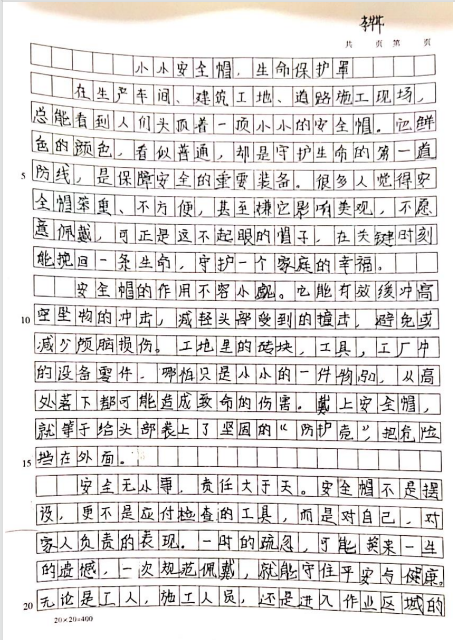 李烨
共 页 第 页
小小安全帽，生命保护罩
在生产车间、建筑工地、道路施工现场，
总能看到人们头顶着一顶小小的安全帽。它鲜
色的颜色，看似普通，却是守护生命的第一道
5 防线，是保障安全的重要装备。很多人觉得安
全帽笨重、不方便，甚至嫌它影响美观，不愿
意佩戴，可正是这不起眼的帽子，在关键时刻
能挽回一条生命，守护一个家庭的幸福。
安全帽的作用不容小觑。它能有效缓冲高
10 空坠物的冲击，减轻头部受到的撞击，避免或
减少颅脑损伤。工地里的砖块，工具，工厂中
的设备零件，哪怕只是小小的一件物品，从高
处落下都可能造成致命的伤害。戴上安全帽，
就等于给头部装上了坚固的“防护壳”，把危险
15 挡在外面。
安全无小事，责任大于天。安全帽不是摆
设，更不是应付检查的工具，而是对自己，对
家人负责的表现。一时的疏忽，可能换来一生
的遗憾，一次规范佩戴，就能守住平安与健康。
20 无论是工人，施工人员，还是进入作业区域的
20×20=400